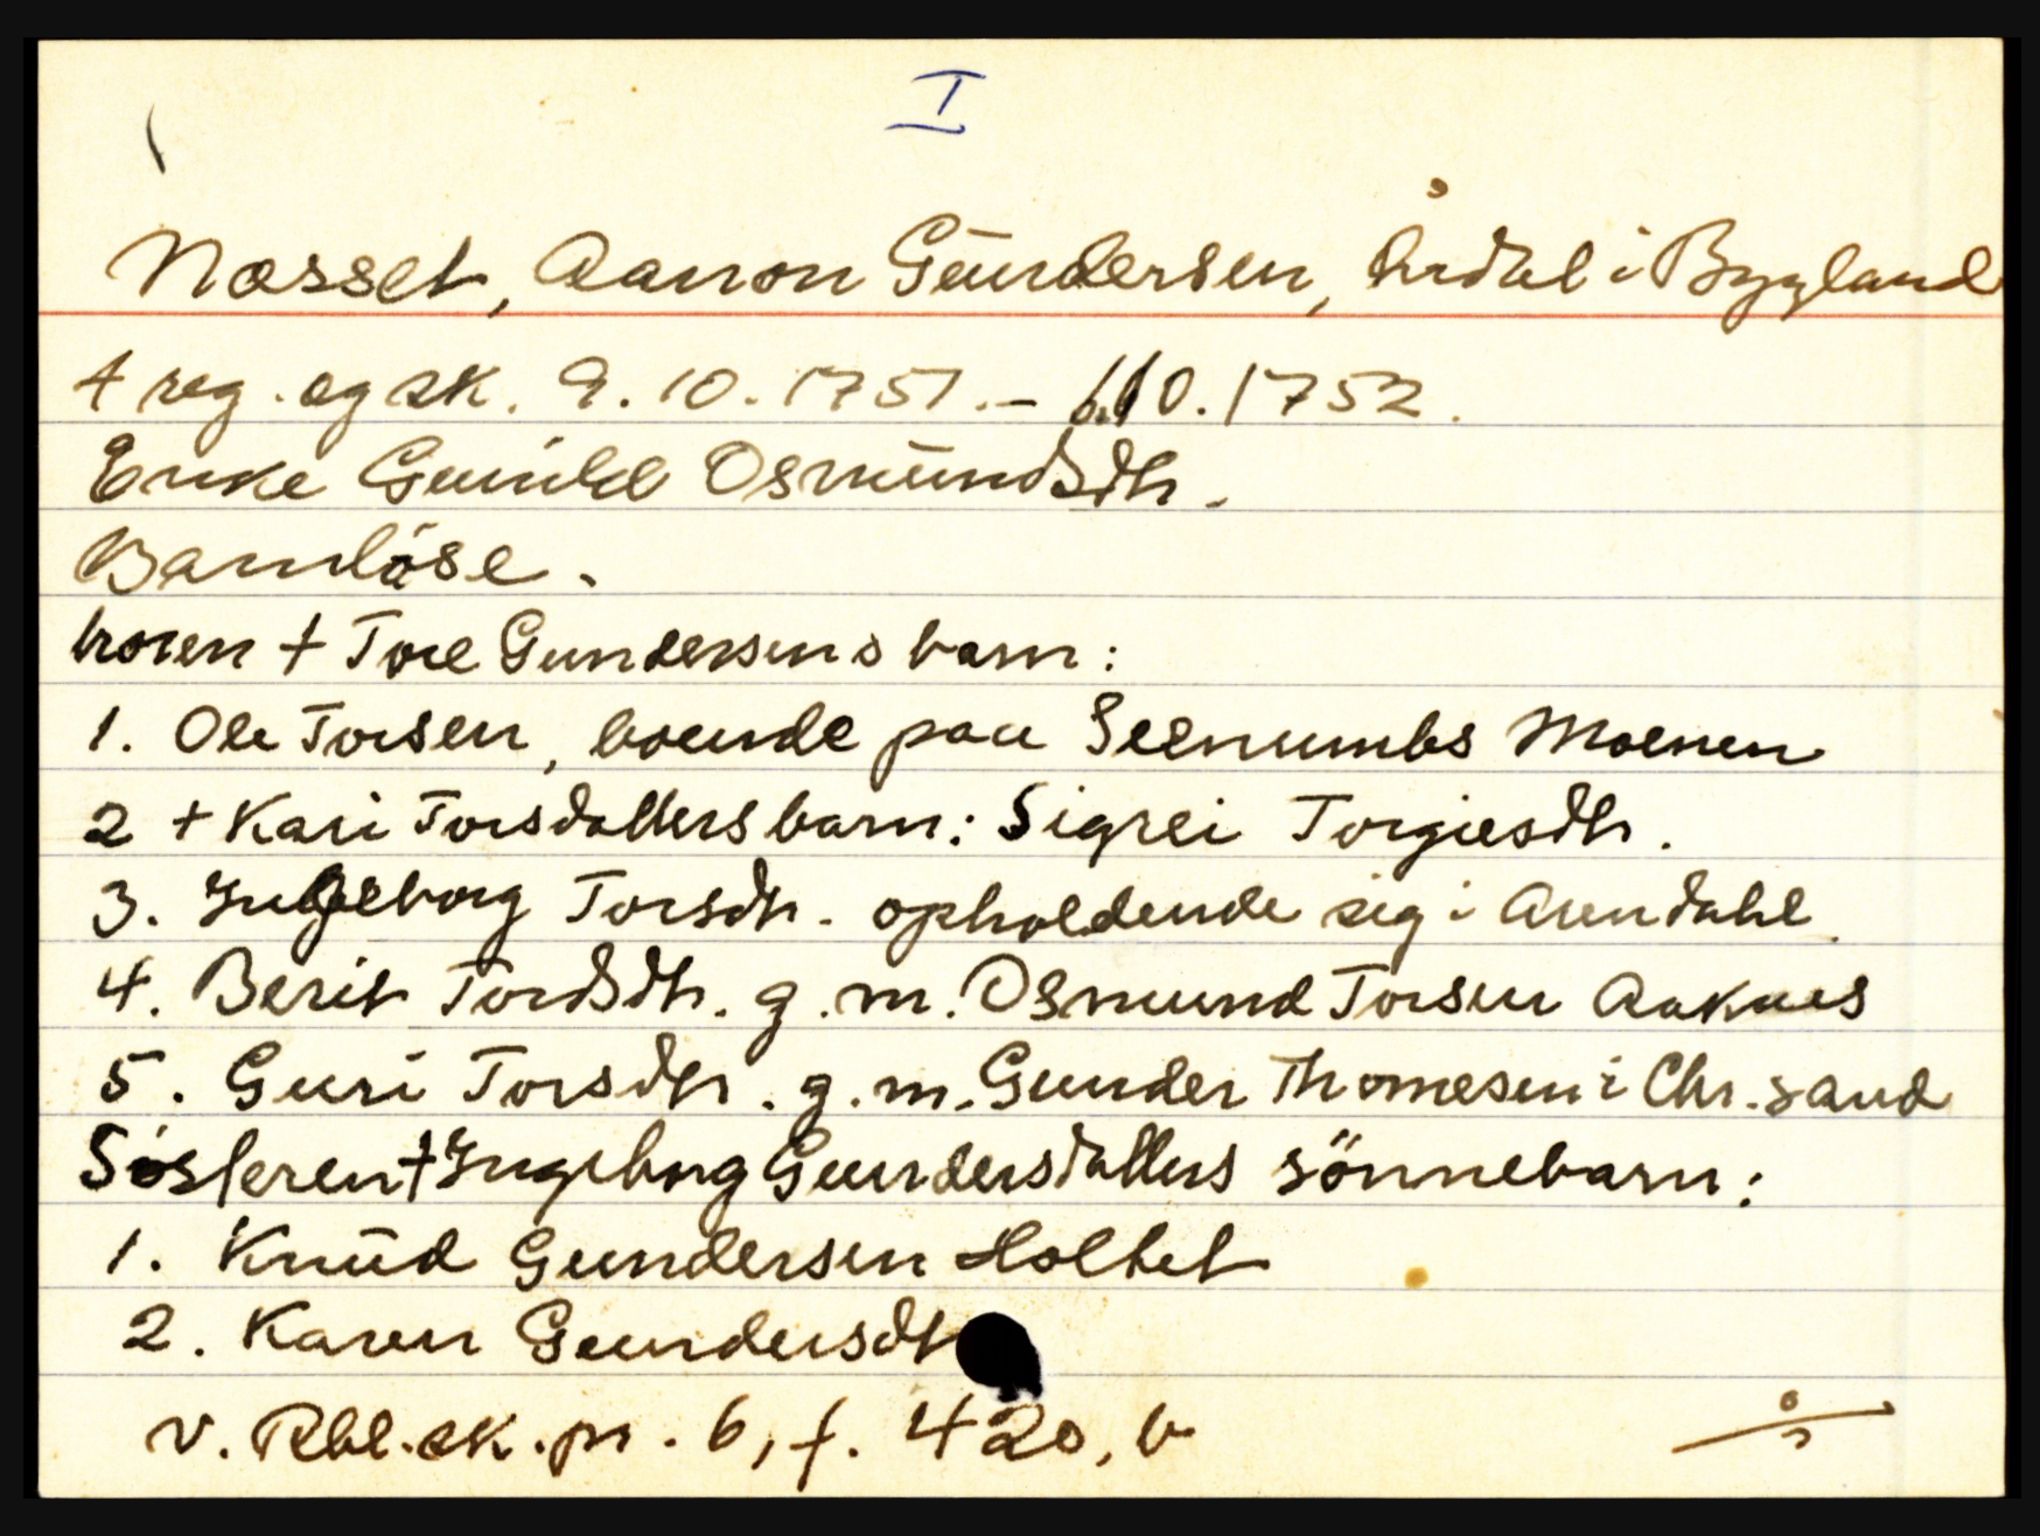 I
Næsset, Aanon Gundersen, Årdal i Bygland
† reg. og sk. 9.10.1751. – 10.1752.
Enke Gunild Osmundsdtr.
Barnløse.
broren † Tore Gundersens barn:
1. Ole Torsen, boende paa Moenen
2 † Kari Torsdatters barn: Sigrei Torgiesdtr.
3. Ingeborg Torsdtr. opholdende sig i Arendahl.
4. Berit Tordsdtr. g.m. Osmund Torsen Aaknes
5. Guri Torsdtr. g.m. Gunder Thomesen i Chr.sand
Søsteren † Ingeborg Gundersdatters sönnebarn:
1. Knud Gundersen Holtet
2. Karen Gundersdtr
v. Rbl. sk. pr. 6, f. 420, b